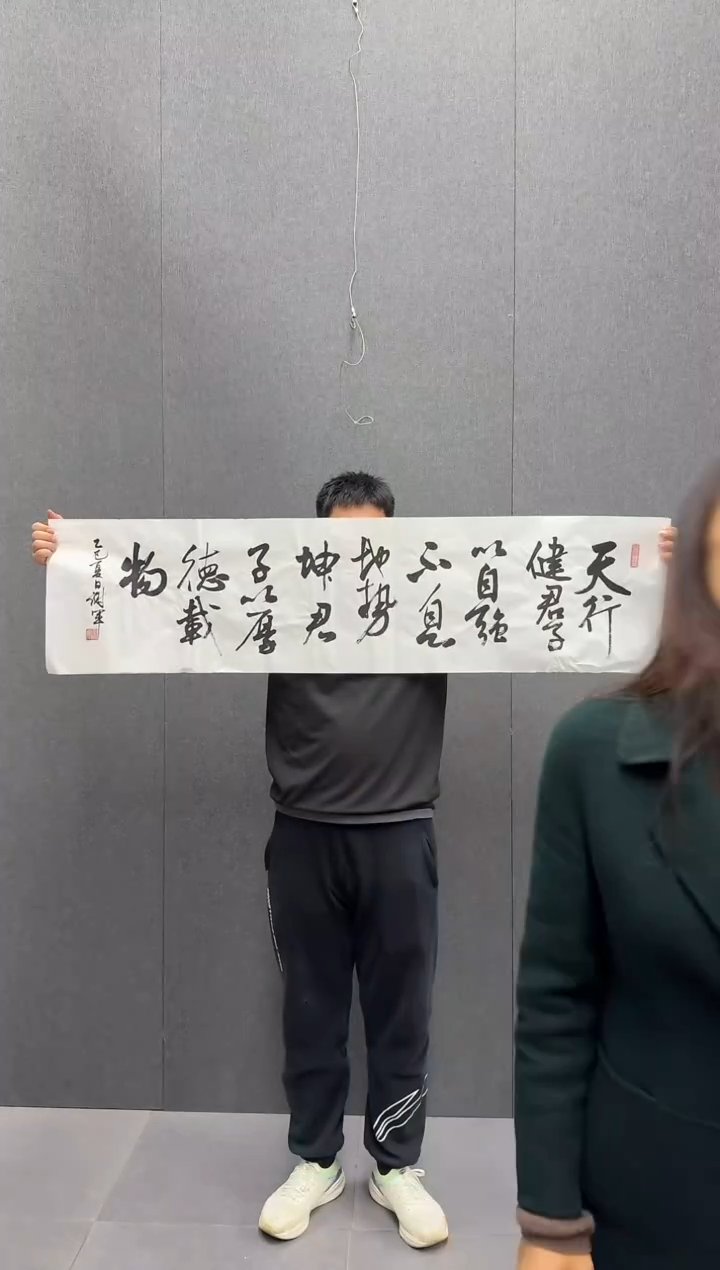 天行
健君子
以自强
不息
地势
坤君
子以厚
德載
物
乙巳夏日